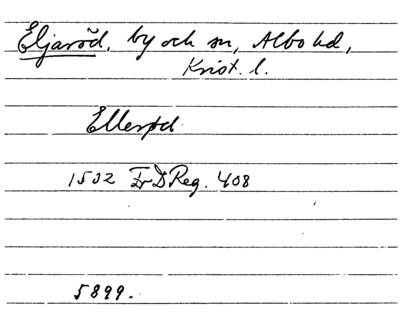 Eljaröd, by och sn, Albo hd,
Krist. l.
Elleröd
1502 ÆDReg. 408
5899.